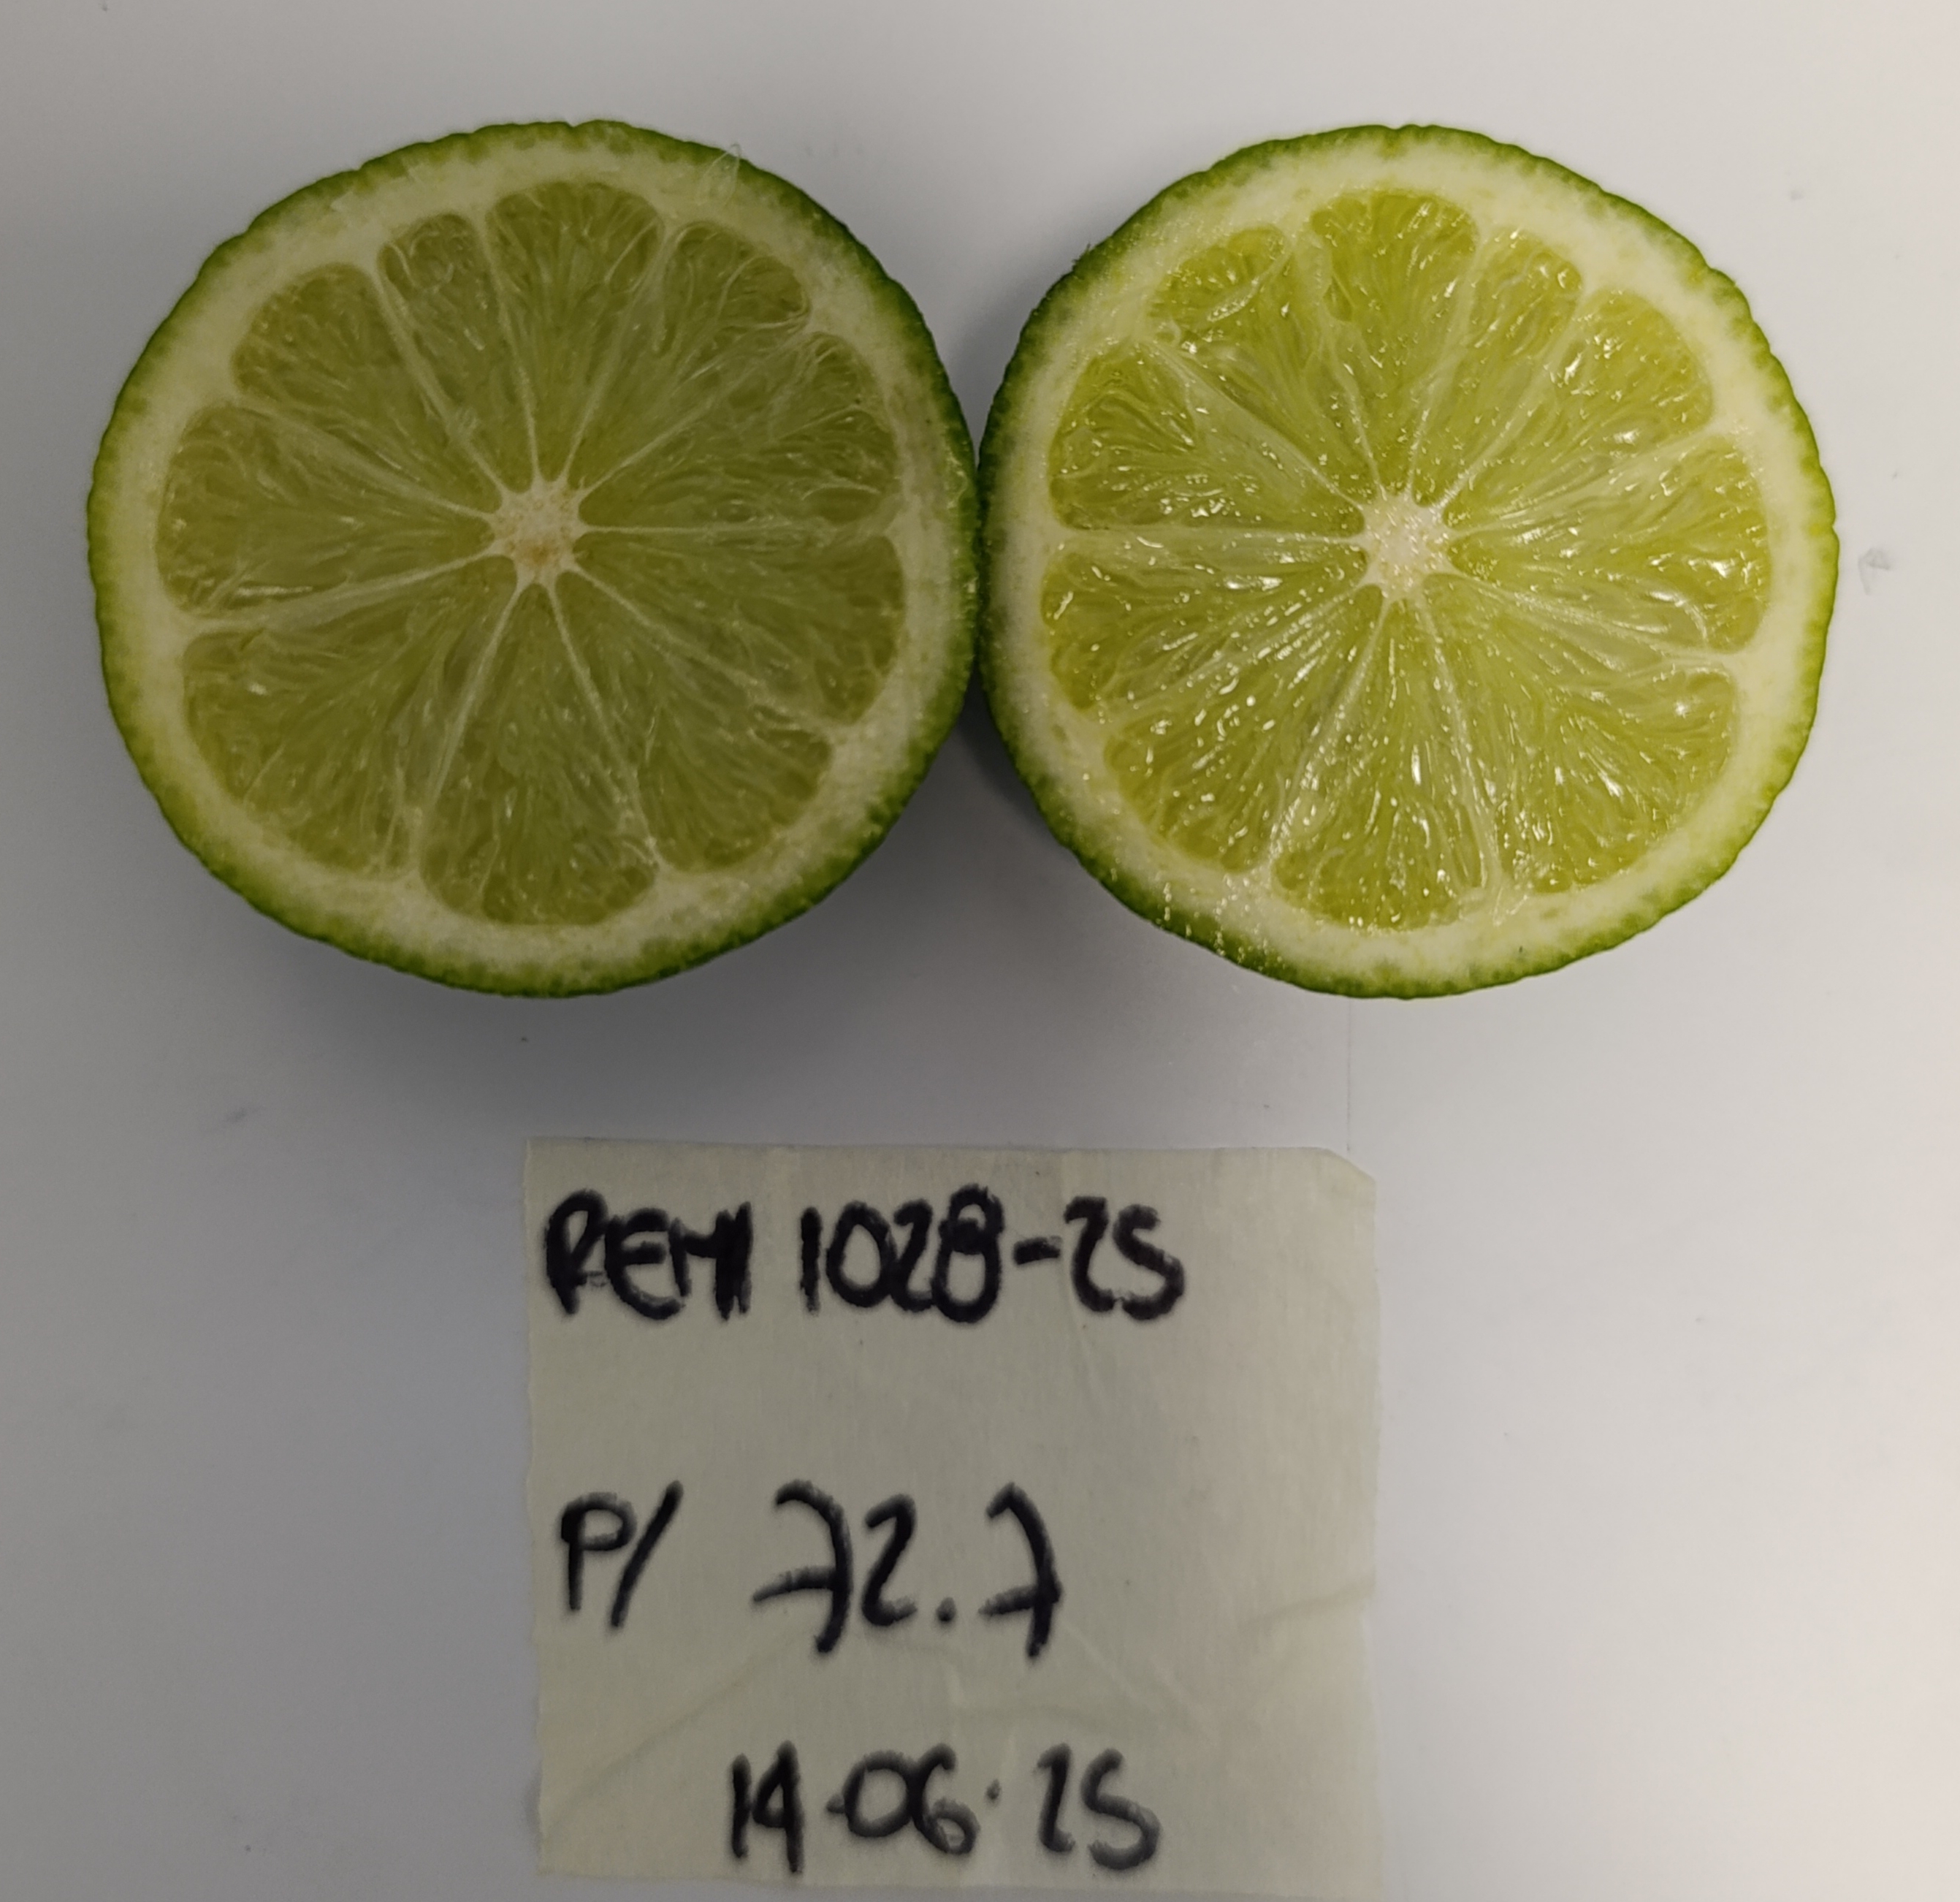 REMI 1028-25
P/ 72.7
14.06.25